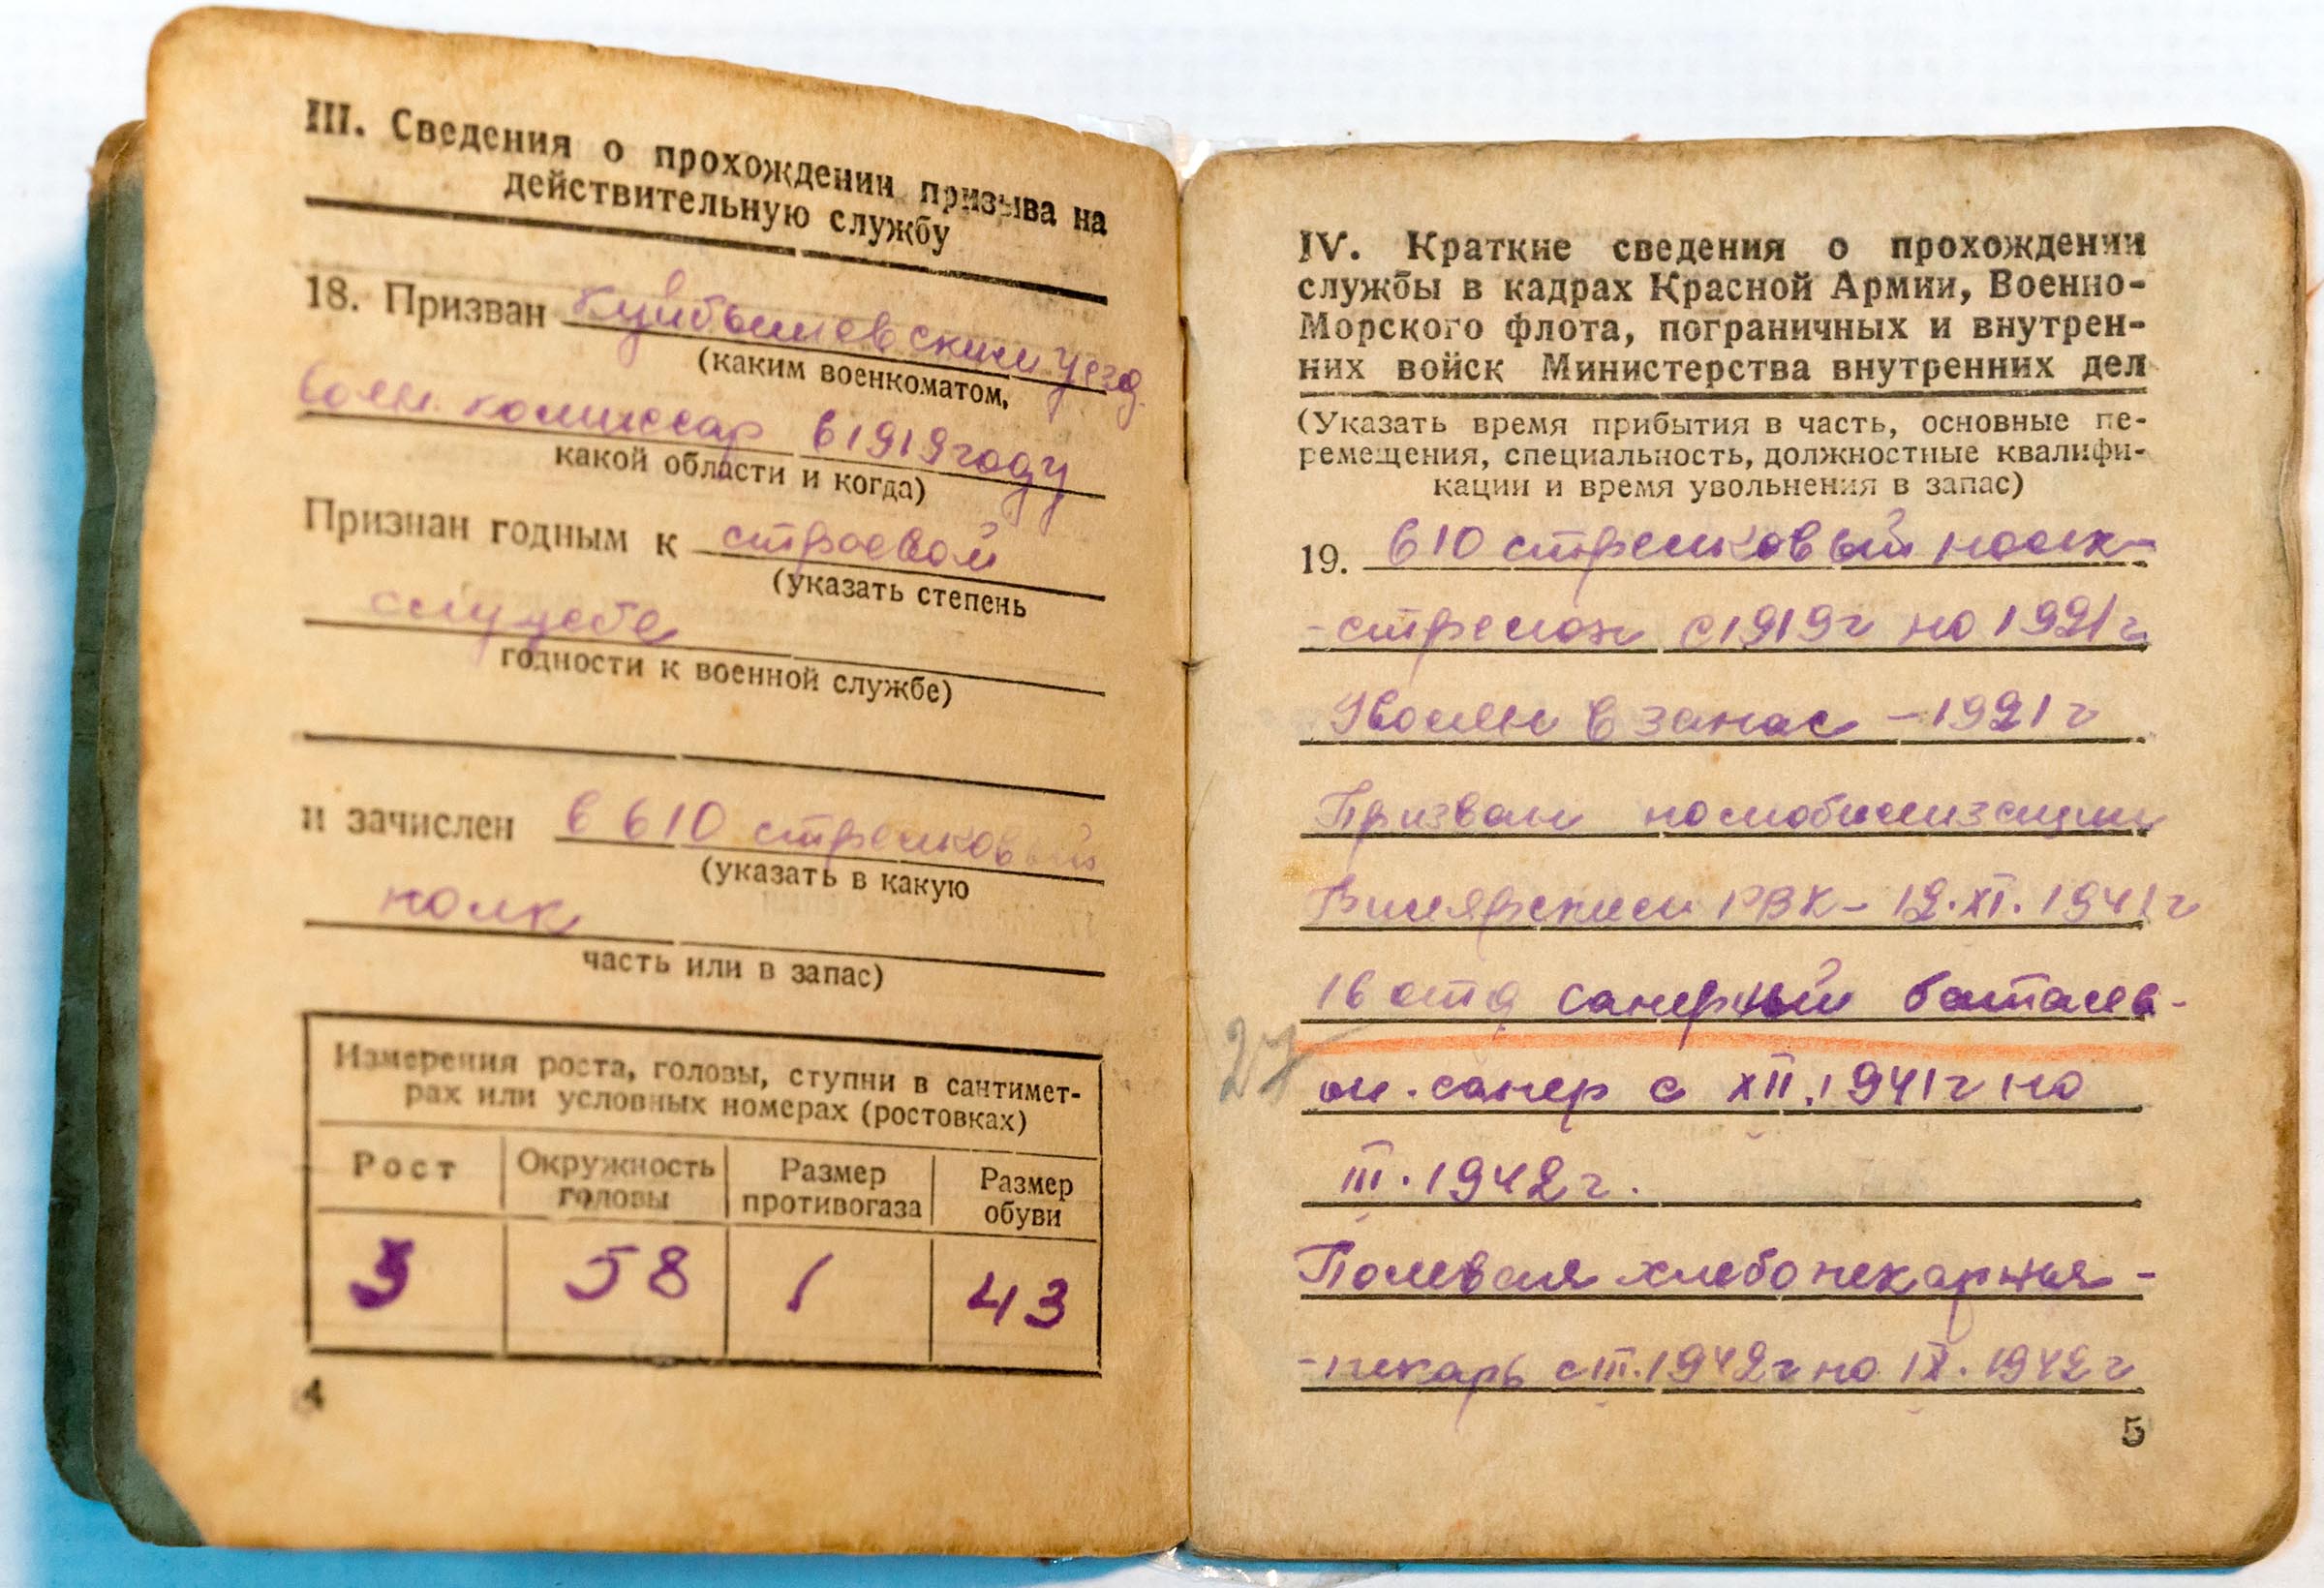 III. Сведения о прохождении призыва на
действительную службу
18. Призван Куйбышевским уезд.
(каким военкоматом,
воен. комиссар в 1919 году
какой области и когда)
Признан годным к строевой
(указать степень
службе
годности к военной службе)
и зачислен в 610 стрелковый
(указать в какую
полк
часть или в запас)
Измерения роста, головы, ступни в сантимет-
рах или условных номерах (ростовках)
Рост Окружность головы Размер противогаза Размер обуви
3 58 1 43
4
IV. Краткие сведения о прохождении
службы в кадрах Красной Армии, Военно-
Морского флота, пограничных и внутрен-
них войск Министерства внутренних дел
(Указать время прибытия в часть, основные пе-
ремещения, специальность, должностные квалифи-
кации и время увольнения в запас)
19. 610 стрелковый полк-
-стрелок с 1919г по 1921г
Уволен в запас - 1921г
Призван по мобилизации
Билярским РВК - 12.XI.1941г
16 отд саперный батальо-
27
он. сапер с XII.1941г по
III.1942г.
Полевая хлебопекарня-
-пекарь с III.1942г по IX.1942г
5